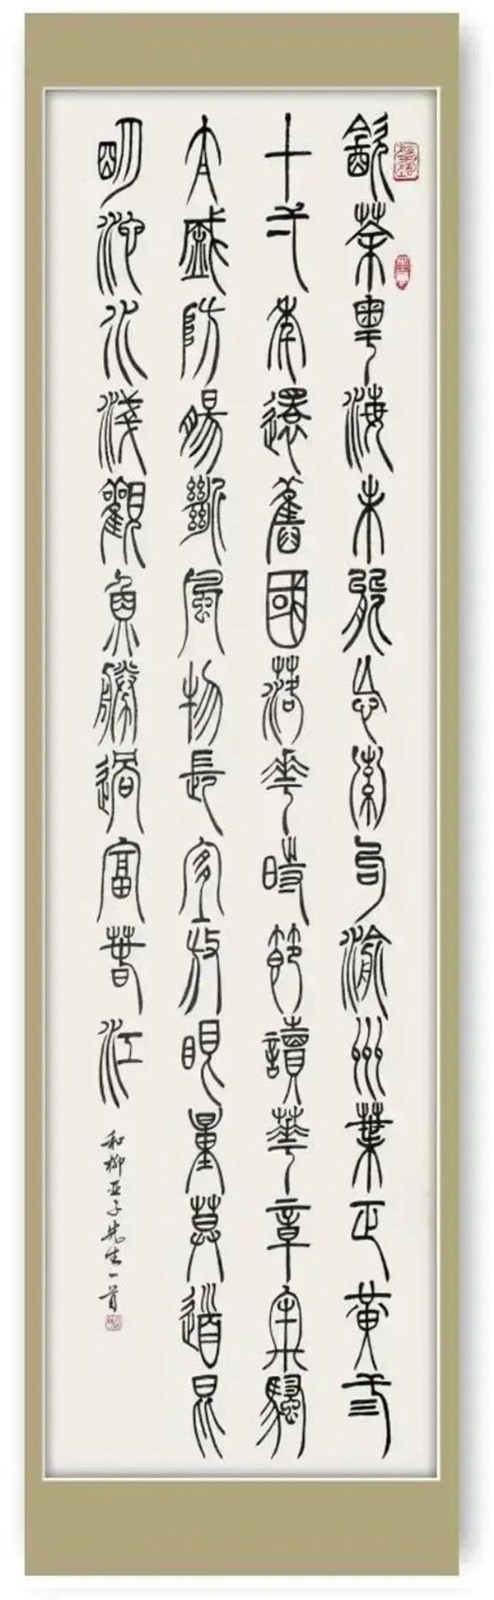 飲茶粵海未能忘索句渝州葉正黃弎
十弌年還舊國落花時節讀華章牢騷
太盛防腸斷風物長宜放眼量莫道昆
明池水淺觀魚勝過富春江
和柳亚子先生一首